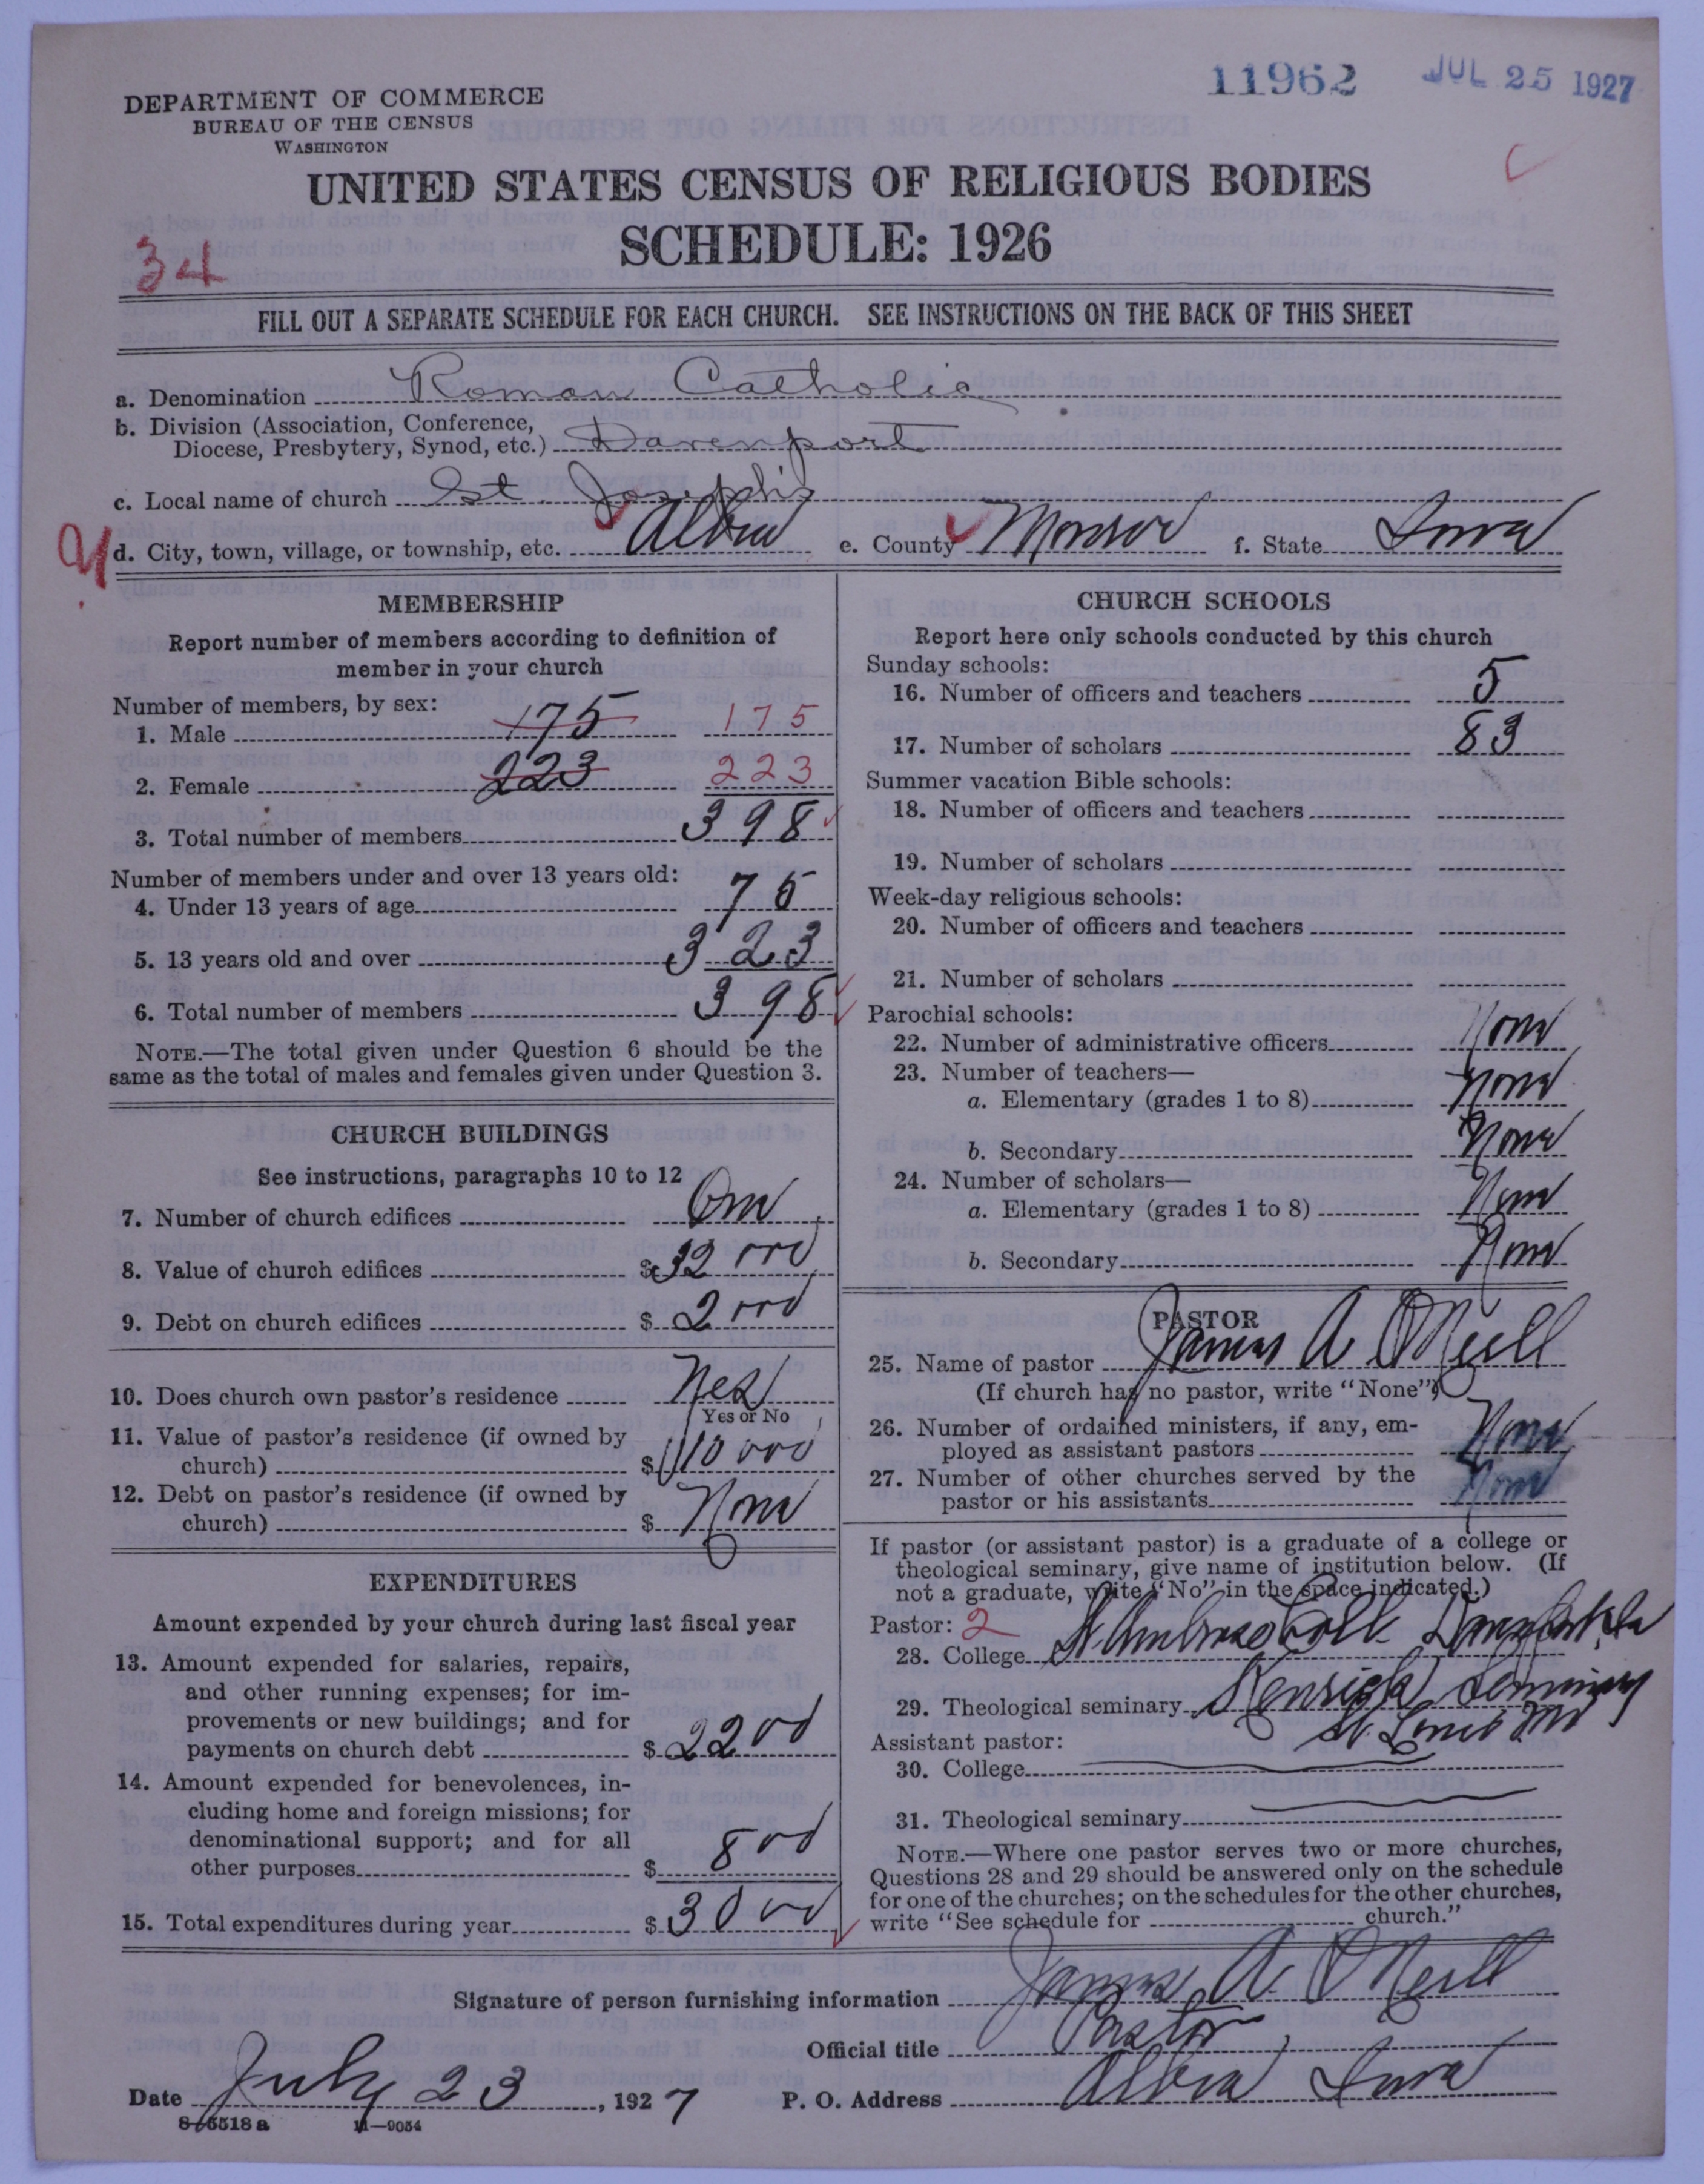 11962 JUL 25 1927
DEPARTMENT OF COMMERCE
BUREAU OF THE CENSUS
WASHINGTON
UNITED STATES CENSUS OF RELIGIOUS BODIES
SCHEDULE: 1926
34
FILL OUT A SEPARATE SCHEDULE FOR EACH CHURCH. SEE INSTRUCTIONS ON THE BACK OF THIS SHEET
a. Denomination Roman Catholic
b. Division (Association, Conference,
Diocese, Presbytery, Synod, etc.) Davenport
c. Local name of church St. Joseph's
d. City, town, village, or township, etc. Albia e. County Monroe f. State Iowa
MEMBERSHIP
Report number of members according to definition of
member in your church
Number of members, by sex:
1. Male 175 175
2. Female 223 223
3. Total number of members 398
Number of members under and over 13 years old:
4. Under 13 years of age 75
5. 13 years old and over 323
6. Total number of members 398
NOTE.—The total given under Question 6 should be the
same as the total of males and females given under Question 3.
CHURCH BUILDINGS
See instructions, paragraphs 10 to 12
7. Number of church edifices One
8. Value of church edifices $ 32 000
9. Debt on church edifices $ 2 000
10. Does church own pastor's residence Yes
Yes or No
11. Value of pastor's residence (if owned by
church) $ 10 000
12. Debt on pastor's residence (if owned by
church) $ None
EXPENDITURES
Amount expended by your church during last fiscal year
13. Amount expended for salaries, repairs,
and other running expenses; for im-
provements or new buildings; and for
payments on church debt $ 2200
14. Amount expended for benevolences, in-
cluding home and foreign missions; for
denominational support; and for all
other purposes $ 800
15. Total expenditures during year $ 3000
CHURCH SCHOOLS
Report here only schools conducted by this church
Sunday schools:
16. Number of officers and teachers 5
17. Number of scholars 83
Summer vacation Bible schools:
18. Number of officers and teachers
19. Number of scholars
Week-day religious schools:
20. Number of officers and teachers
21. Number of scholars
Parochial schools:
22. Number of administrative officers None
23. Number of teachers—
a. Elementary (grades 1 to 8) None
b. Secondary None
24. Number of scholars—
a. Elementary (grades 1 to 8) None
b. Secondary None
PASTOR
25. Name of pastor James A O'Neill
(If church has no pastor, write "None")
26. Number of ordained ministers, if any, em-
ployed as assistant pastors None
27. Number of other churches served by the
pastor or his assistants None
If pastor (or assistant pastor) is a graduate of a college or
theological seminary, give name of institution below. (If
not a graduate, write "No" in the space indicated.)
Pastor: 2
28. College St Ambrose Coll. Davenport, Ia
29. Theological seminary Kenrick Seminary
St. Louis Mo
Assistant pastor:
30. College
31. Theological seminary
NOTE.—Where one pastor serves two or more churches,
Questions 28 and 29 should be answered only on the schedule
for one of the churches; on the schedules for the other churches,
write "See schedule for church."
Signature of person furnishing information James A. O'Neill
Official title Pastor
Date July 23, 1927 P. O. Address Albia Iowa
8-5518a 11—9054